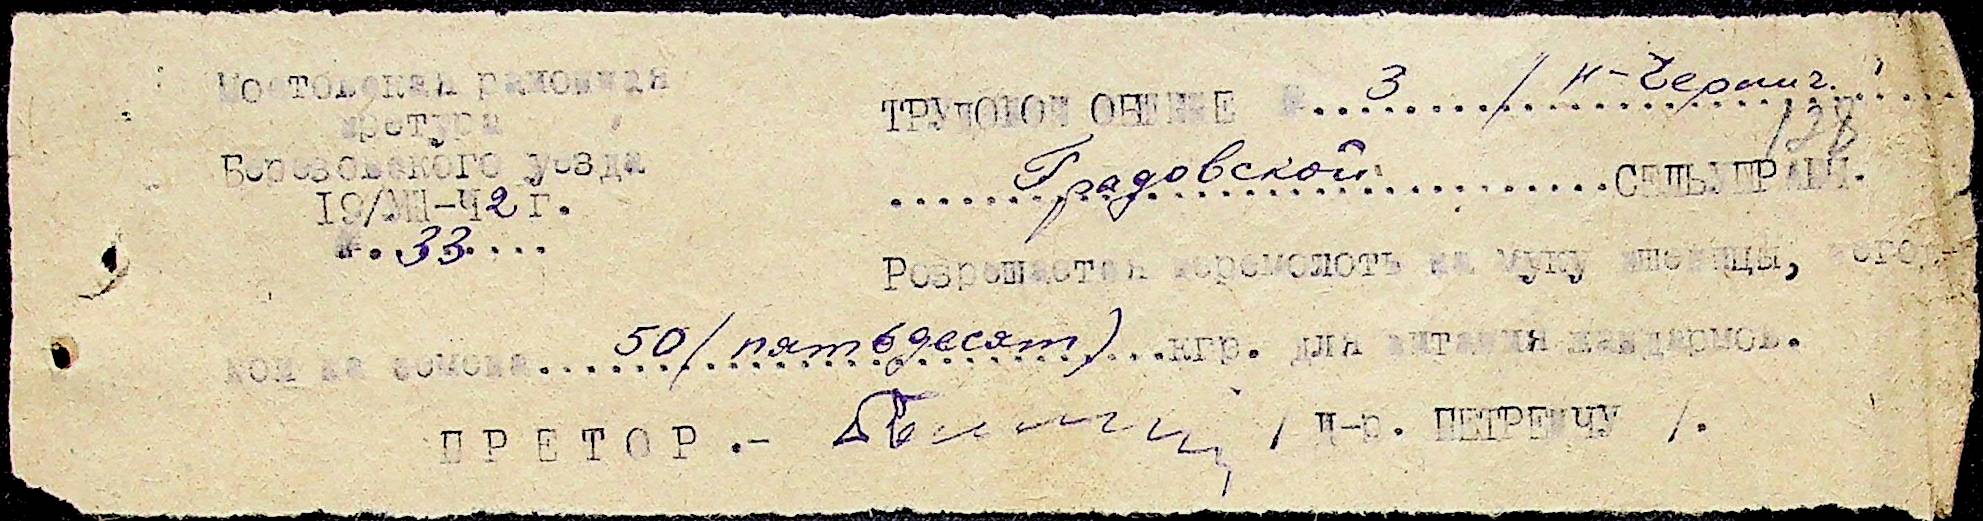 Мостовская районная
претура
Березовского уезда
19/VIII-42 г.
№. 33....
ТРУДОВОЙ ОБЩИНЕ №....3..../ н-Черниг. /
128
....Градовской....СЕЛЬУПРАВЫ.
Розрешается перемолоть на муку пшеницы, негод-
ной на семена....50 (пятьдесят)....кгр. для питания жандармов.
ПРЕТОР.- / Д-р. ПЕТРЕНЧУ /.